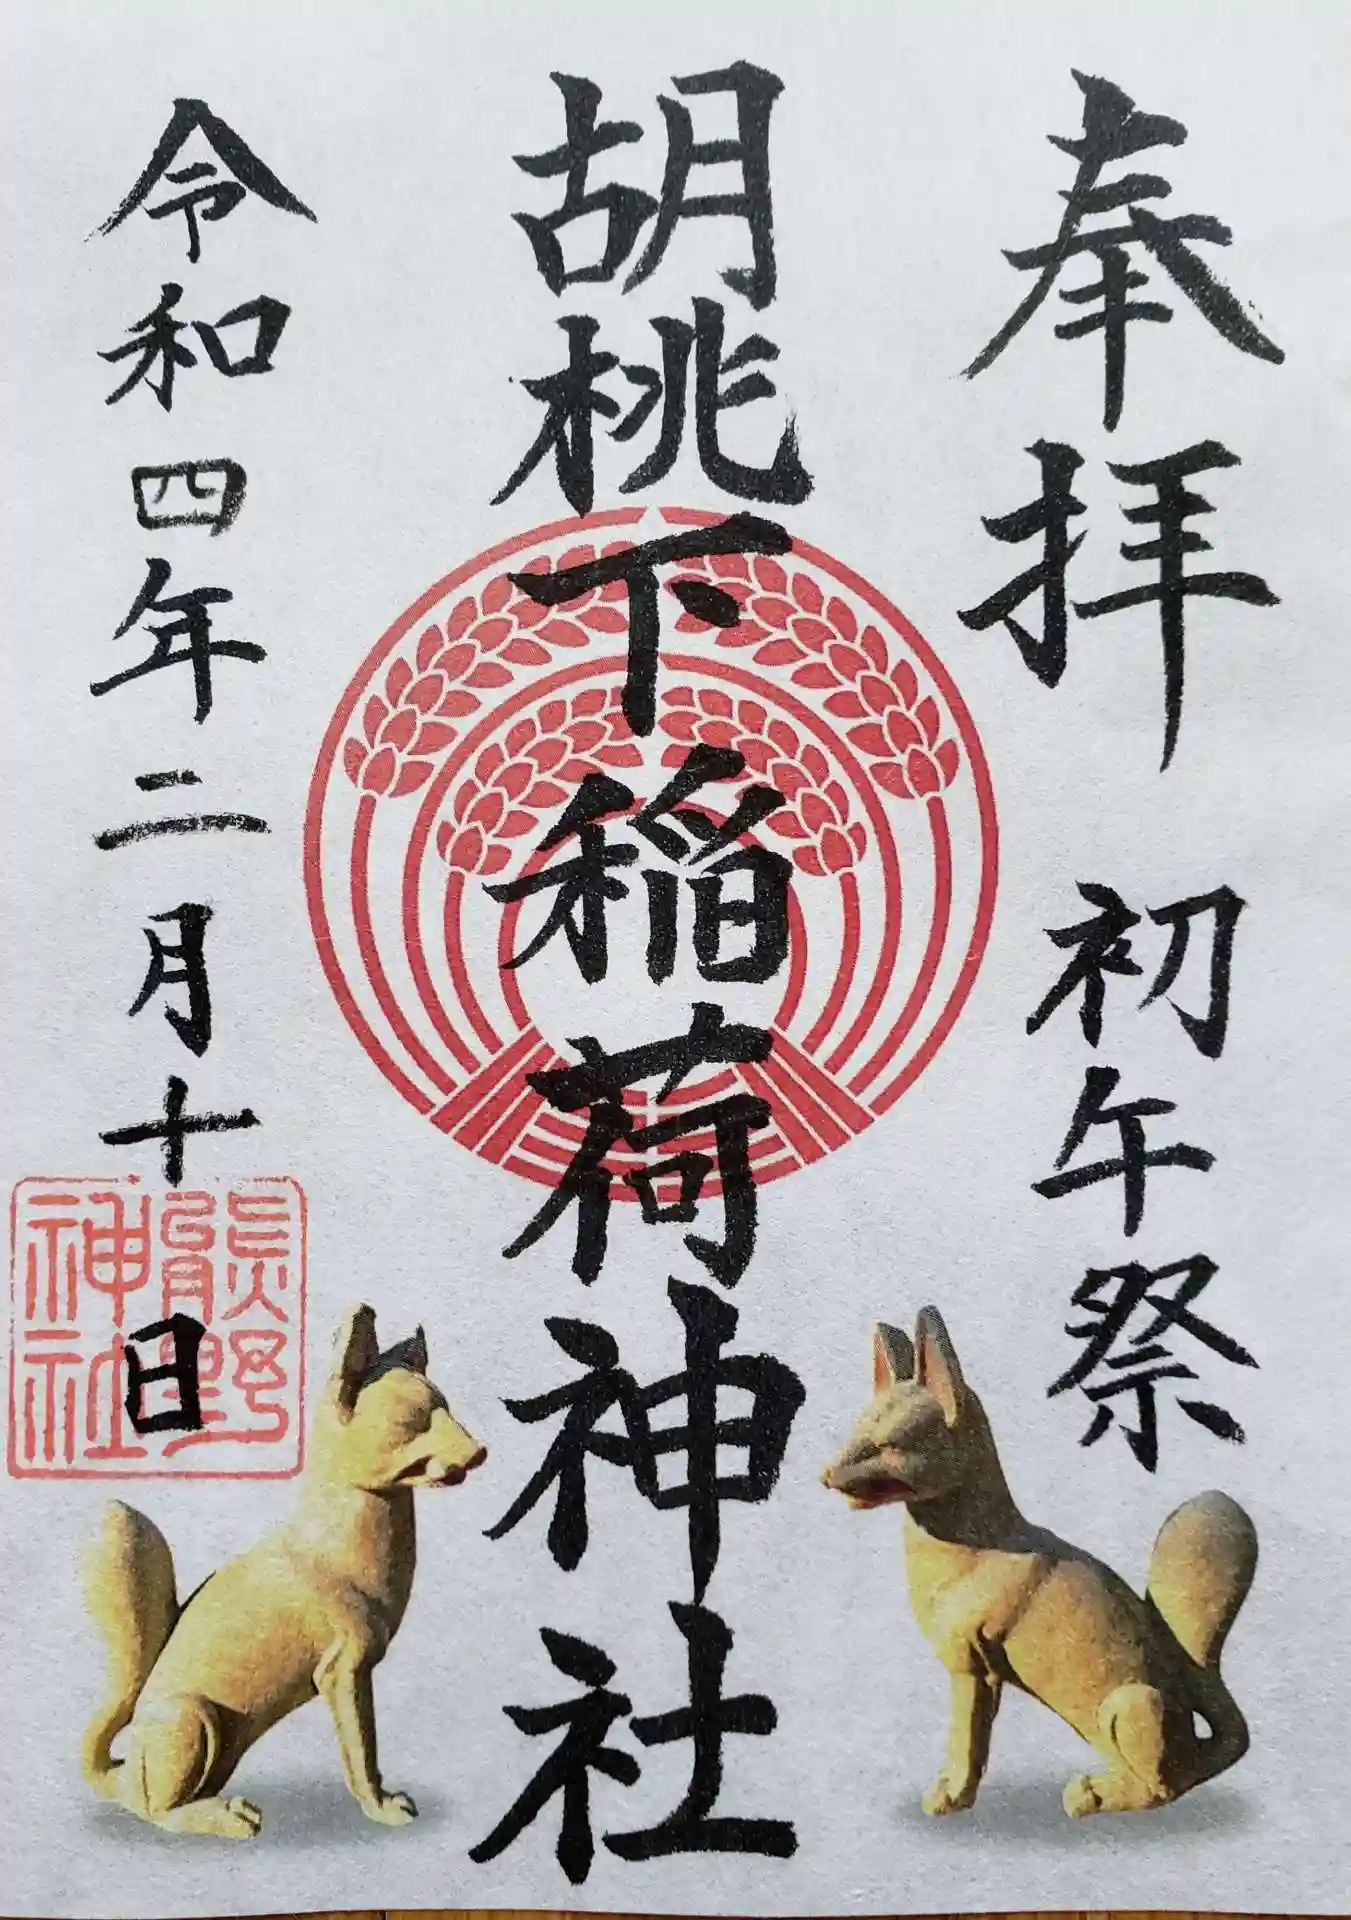 奉拝 初午祭
胡桃下稲荷神社
令和四年二月十日
熊野
神社